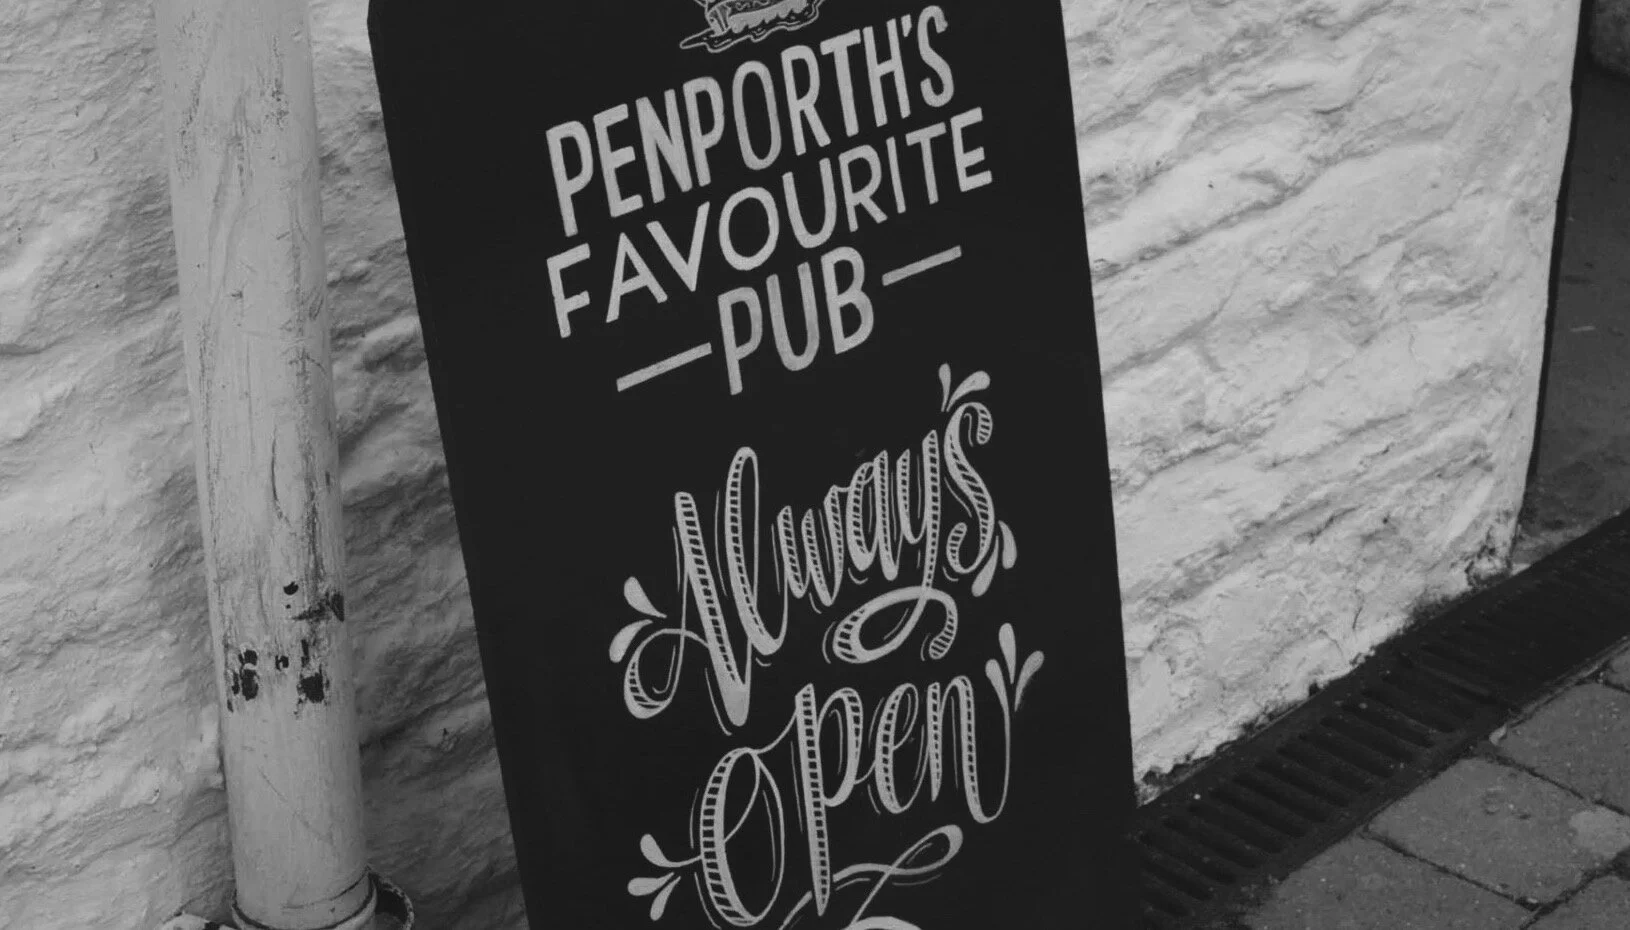 PENPORTH'S
FAVOURITE
—PUB—
Always
Open